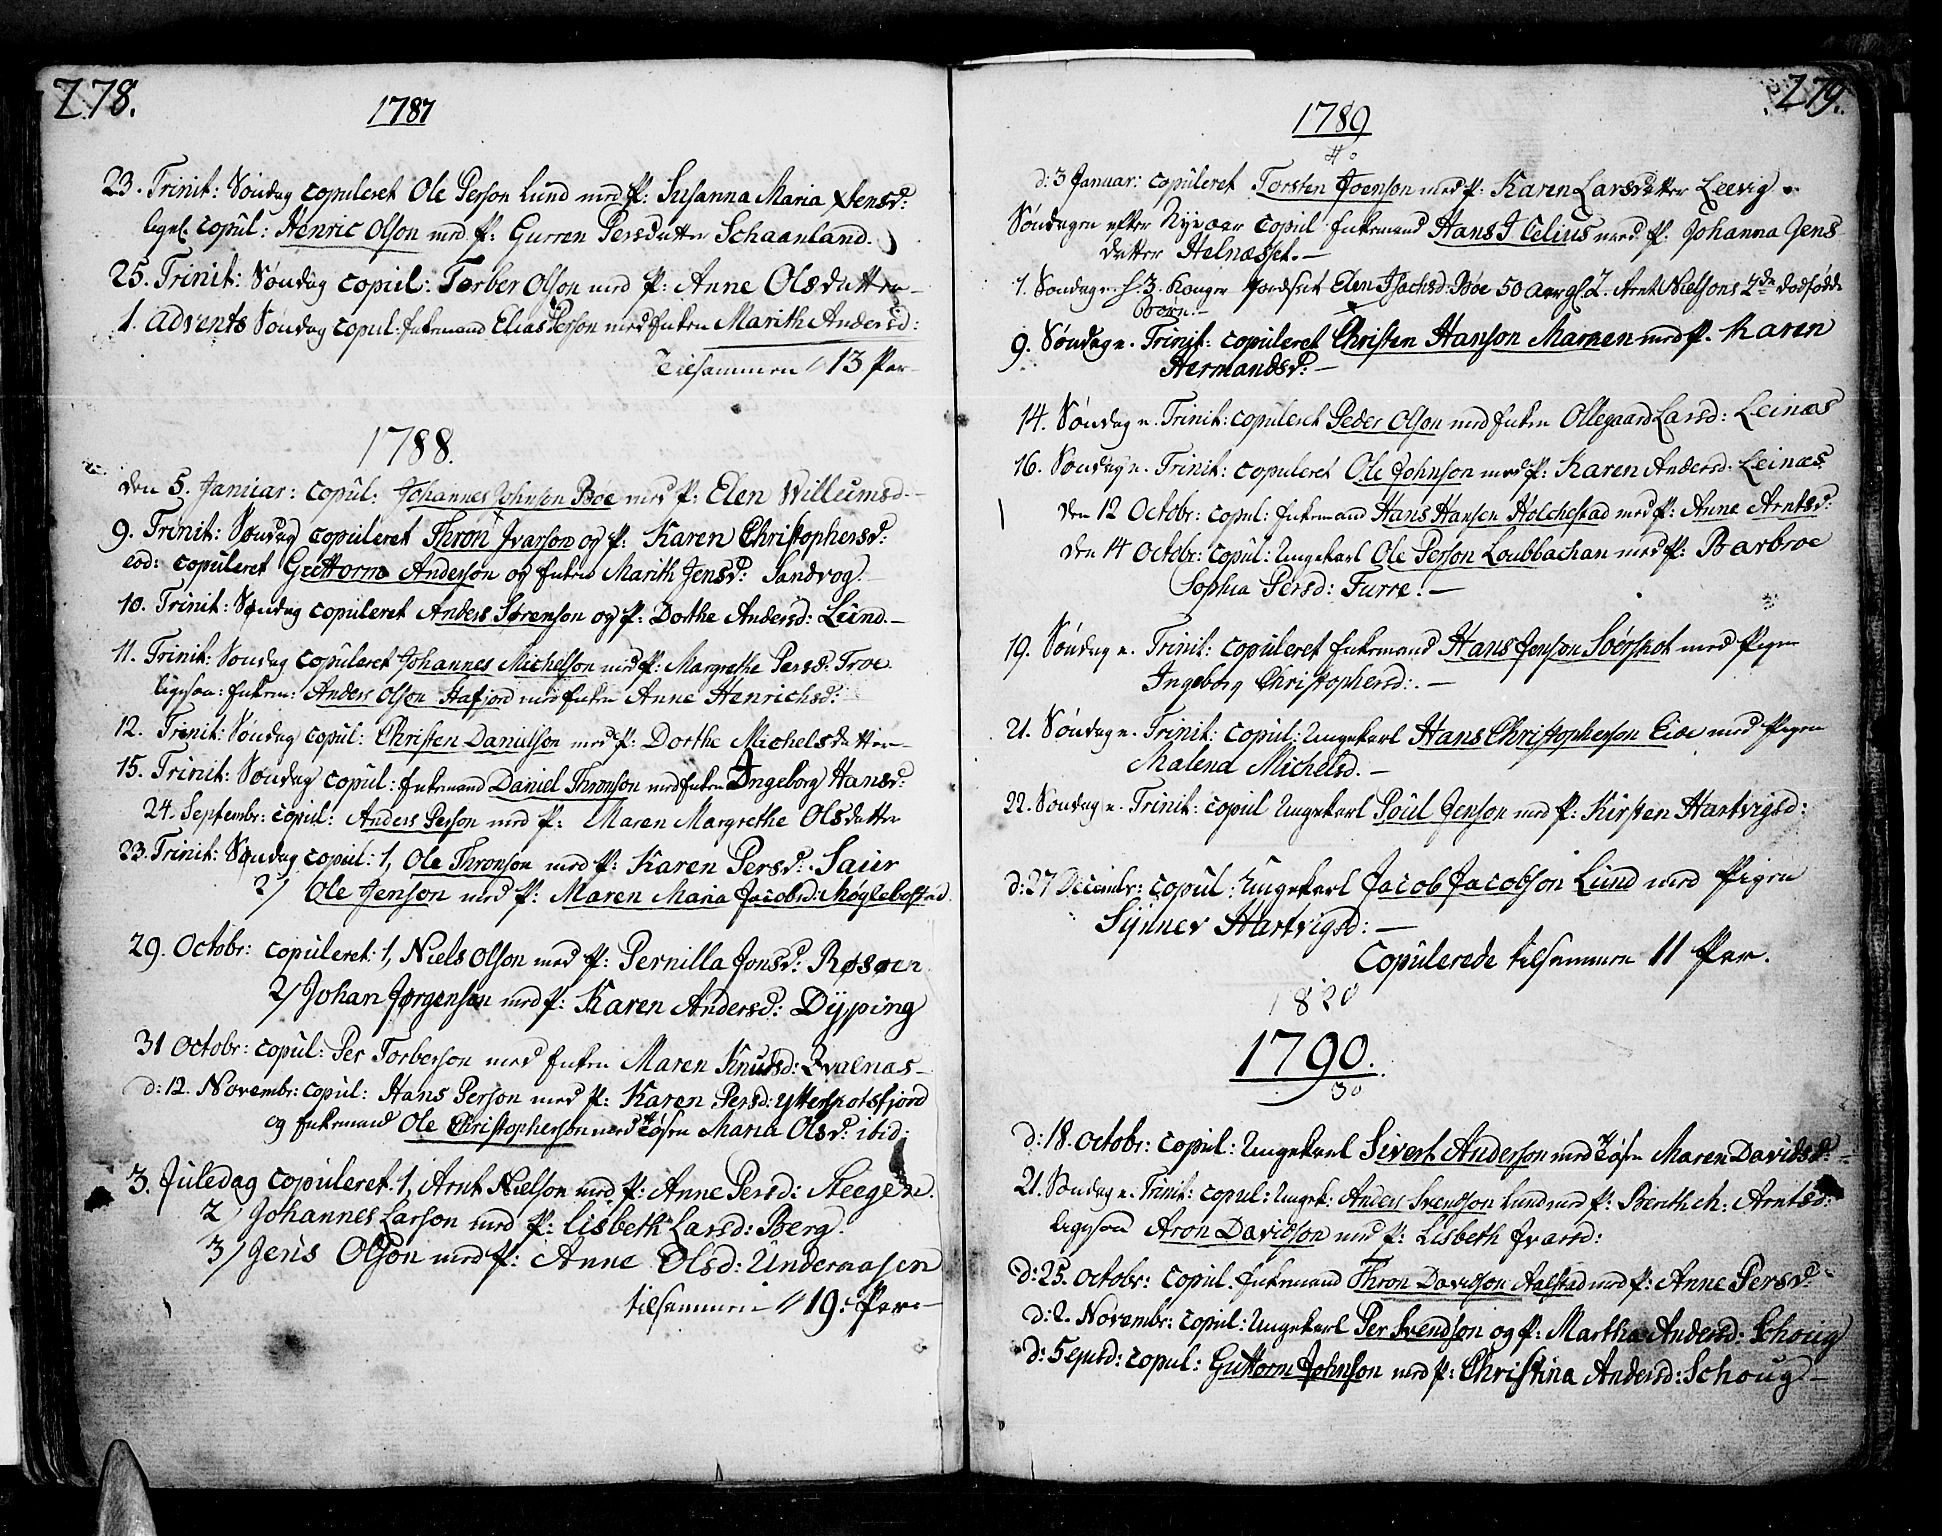 278.
1787
23. Trinit: Søndag copuleret Ole Person Lund med P: Susanna Maria Xtensd:
ligel. copul: Henric Olson med P: Gurren Persdatter Schaanland.
25. Trinit: Søndag copul: Torber Olson med P: Anne Olsdatter
1. Advents Søndag copul. Enkemand Elias Person med Enken Marith Andersd:
Tilsammen 13 Par
1788.
den 5. Januar: copul: Johannes Johnson Bøe med P: Elen Willumsd.
9. Trinit: Søndag copuleret Thron Ivarson og P: Karen Christophersd:
eod: copuleret Guttorm Anderson og Enken Marith Jensd: Sandvog.
10. Trinit: Søndag copuleret Anders Sørenson og P: Dorthe Andersd: Lund.
11. Trinit: Søndag copuleret Johannes Michelson med P: Margrethe Persd: Troe
ligesaa: Enkem: Anders Olson Hafjord med Enken Anne Henrichsd:
12. Trinit: Søndag copul: Christen Danielson med P: Dorthe Michelsdatter
15. Trinit: Søndag copul: Enkemand Daniel Thronson med Enken Ingeborg Hansd:
24. Septembr: copul: Anders Person med P: Maren Margrethe Olsdatter
23. Trinit: Søndag copul: 1, Ole Thronson med P: Karen Persd: Saur
2/ Ole Jenson med P: Maren Maria Jacobsd: Møglebostad
29. Octobr: copuleret: 1, Niels Olson med P: Pernilla Jonsd: Røsøen
2/ Johan Jørgenson med P: Karen Andersd: Dypping
31 Octobr: copul: Per Torberson med Enken Maren Knudsd: Hvalnæs
d: 12. Novembr: copul: Hans Person med P: Karen Persd: Ytterskotsfjord
og Enkemand Ole Christopherson med Tøsen Maria Olsd: ibid:
3. Juledag copuleret: 1, Arnt Nielson med P: Anne Persd: Steegen.
2/ Johannes Larson med P: Lisbeth Larsd: Berg.
3/ Jens Olson med P: Anne Olsd: Underaasen
tilsammen 19. Par
279.
1789
d: 3 Januar: copuleret Torsten Joenson med P: Karen Larsdatter Leevig
Søndagen efter Nyeaar copul Enkemand Hans J Celius med P. Johanna Jens
datter Helnæsset.
1. Søndag e. H. 3. Konger jordfæstet Elen Isachsd. Bøe 50 Aar gl. 2. Arnt Nielsons 2de dødfødde
Børn.
9. Søndag e. Trinit: copuleret Christen Hanson Marnen med P. Karen
Hermandsd:
14. Søndag e. Trinit: copuleret Peder Olson med Enken Ollegaard Larsd: Leinæs
16. Søndag e. Trinit: copuleret Ole Johnson med P: Karen Andersd: Leinæs
den 12 Octobr: copul: Enkemand Hans Hansen Holchestad med P: Anne Arntsd:
den 14 Octobr: copul: Ungekarl Ole Person Loubbachan med P: Barbroe
Sophia Persd: Furre.
19. Søndag e. Trinit: copuleret Enkemand Hans Jonson Sørskot med Pigen
Ingeborg Christophersd:
21. Søndag e. Trinit: copul: Ungekarl Hans Christopherson Eide med Pigen
Malena Michelsd.
22. Søndag e. Trinit: copul Ungekarl Poul Jenson med P: Kirsten Hartvigsd:
d: 27 Decembr: copul: Ungekarl Jacob Jacobson Lund med Pigen
Synnev Hartvigsd:
Copulerede tilsammen 11 Par.
1820
1790.
30
d: 18. Octobr: copul: Ungekarl Sivert Anderson med Tøsen Maren Davidsd:
21. Søndag e. Trinit: copul: Ungek: Anders Svendson Lund med P: Berith ch. Arntsd:
ligesaa Aron Davidson med P: Lisbeth Ivarsd:
d: 25. Octobr: copul. Enkemand Thron Davidson Aalstad med P: Anne Persd:
d: 2. Novembr: copul: Ungekarl Per Svendson og P: Martha Andersd: Schoug
d: 5 ejusd: copul: Guttorm Johnson med P: Christina Andersd: Schoug